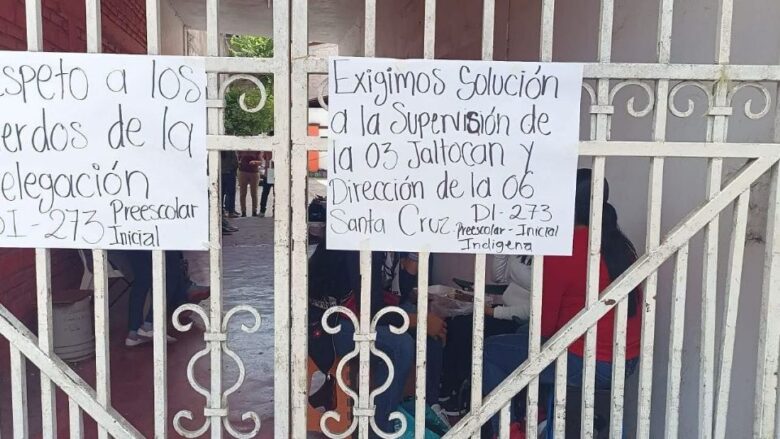 speto a los
erdos de la
elegación
DI-273 Preescolar
Inicial
Exigimos Solución
a la Supervisión de
la 03 Jaltocan y
Dirección de la 06
Santa Cruz. DI-273
Preescolar-Inicial
Indígena